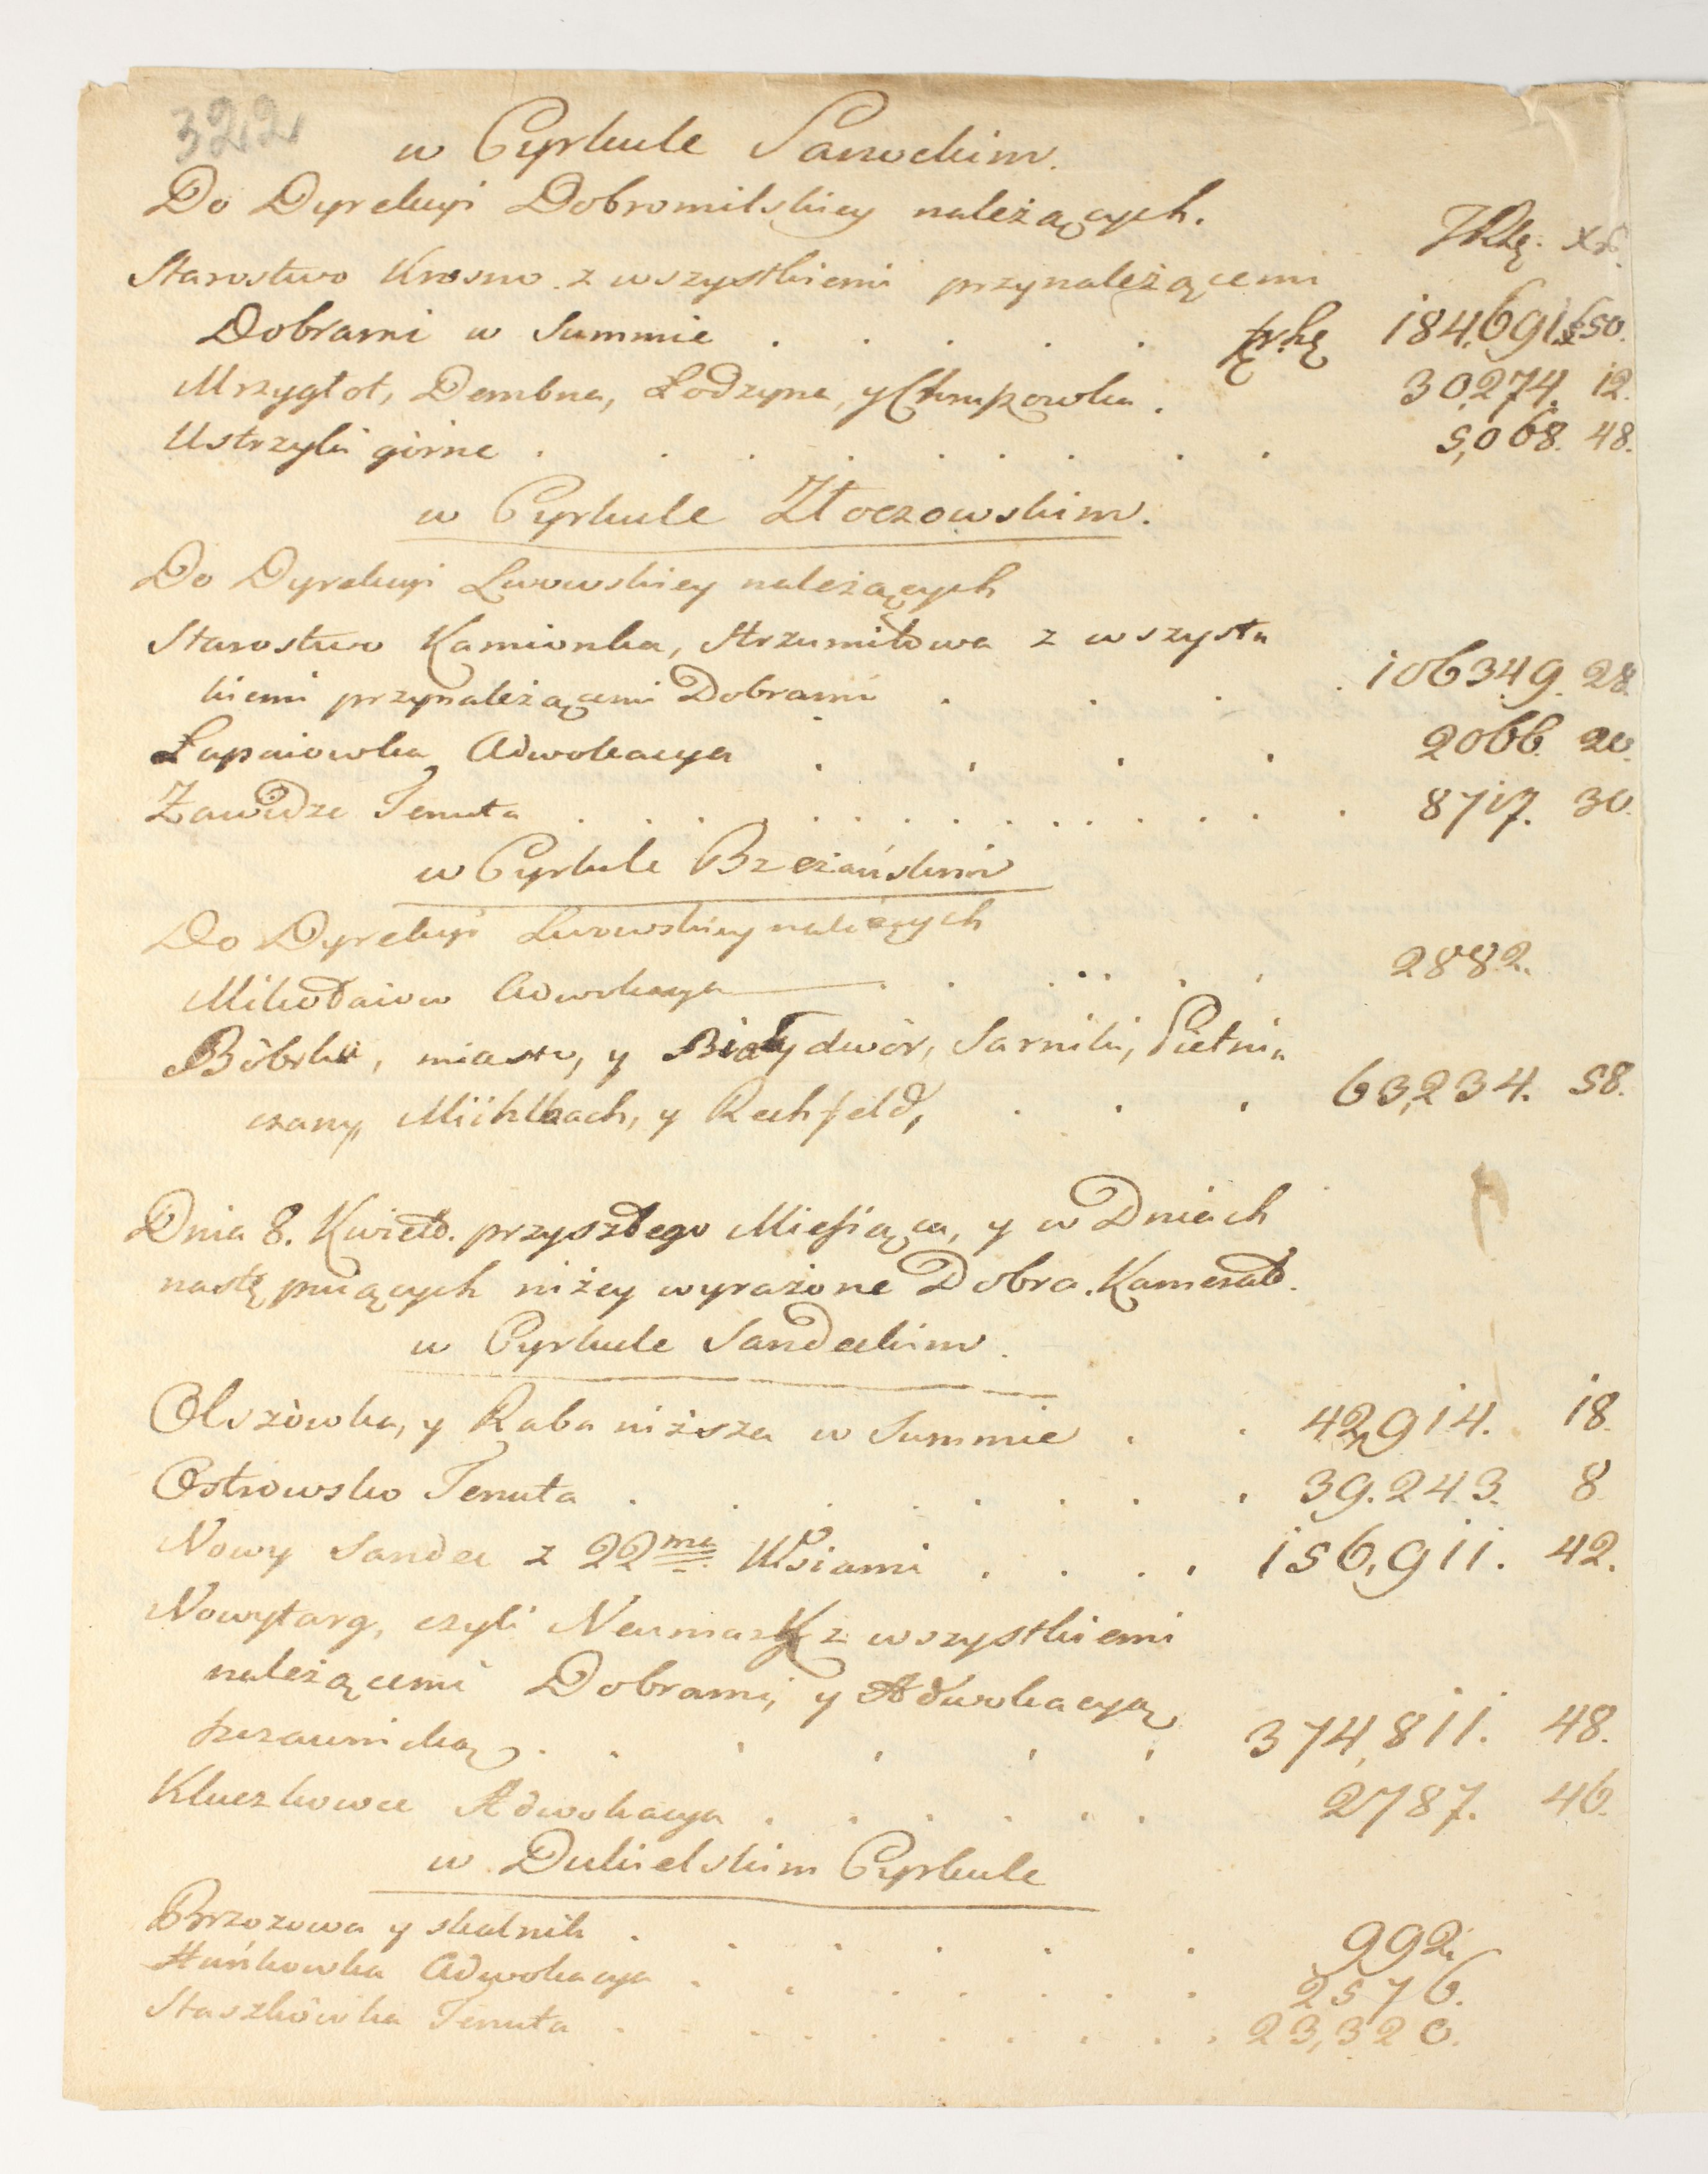 322
w Cyrkule Sanockim.
Do Dyrekcyi Dobromilskiey należących.
ZRhę. xr.
Starostwo Krosno z wszystkiemi przynależącemi
Dobrami w Summie . . . . . 184,691. 50.
Mrzygłot, Dembna, Łodzyna, y Chrupowka . 30,274. 12.
Ustrzyki górne . . . . . . . . . 5,068. 48.
w Cyrkule Złoczowskim.
Do Dyrekcyi Lwowskiey należących
Starostwo Kamionka, Strzumiłowa z wszyst„
kiemi przynależącemi Dobrami . . . . 106349. 28.
Łapaiowka Adwokacya . . . . . 2066. 20.
Zawidze Tenuta . . . . . . . . . . . . 8717. 30.
w Cyrkule Brzeżańskim
Do Dyrekcyi Lwowskiey należących
Mikołaiow Adwokacya . . . . . . 2882.
Bóbrka, miasto, y Biały dwór, Sarniki, Pietni„
czany, Mühlbach, y Rechfeld, . . . 63,234. 58.
Dnia 8. Kwietn. przyszłego Miesiąca, y w Dniach
następuiących niżey wyrażone Dobra. Kameral.
w Cyrkule Sandeckim.
Olszówka, y Raba niższa w Summie . . 42,914. 18.
Ostrowsko Tenuta . . . . . . . . 39.243. 8
Nowy Sandec z 22mi Wsiami . . . . 156,911. 42.
Nowytarg, czyli Neumark z wszystkiemi
należącemi Dobrami, y Adwokacyą
szczawnicką . . . . . . 374,811. 48.
Kluszkowce Adwokacya . . . . . . 2787. 46.
w Dukielskim Cyrkule
Brzozowa y skalnik . . . . . . 992.
Hańkowka Adwokacya . . . . . . . 2576.
Staszkówka Tenuta . . . . . . . . . 23,320.